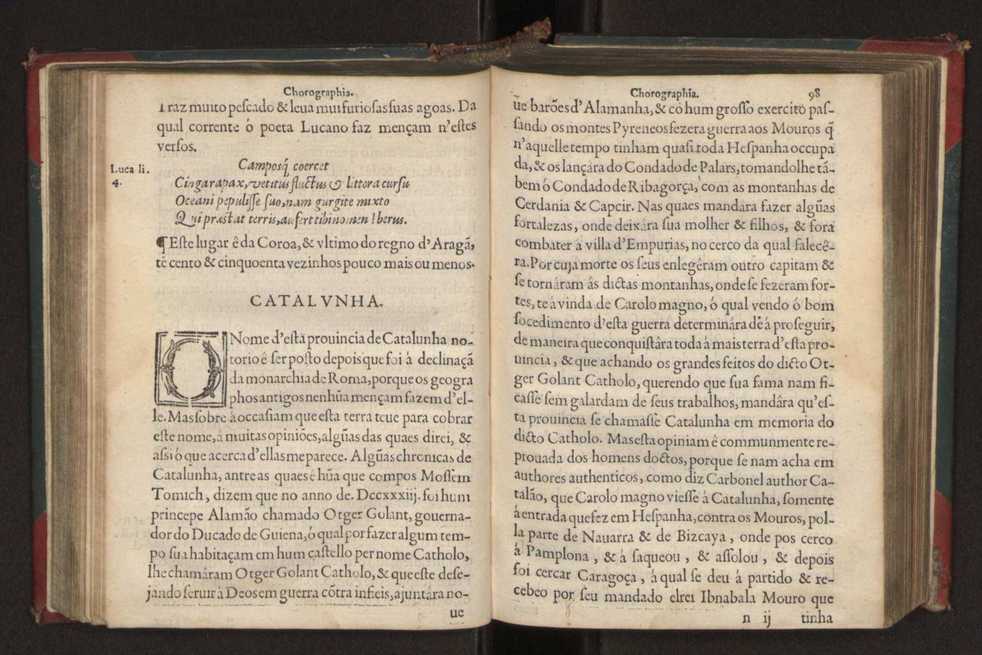 Chorographia.
Traz muito peſcado & leua mui furioſas ſuas agoas. Da
qual corrente ó poeta Lucano faz mençam n'eſtes
verſos.
Luca li.
4.
Campoſq̃ coercet
Cinga rapax, vetitus fluctus & littora curſu
Oceani pepuliſſe ſuo, nam gurgite mixto
Qui præſtat terris, aufert tibi nomen Iberus.
¶ Eſte lugar é da Coroa, & vltimo do regno d'Aragã,
tẽ cento & cinquoenta vezinhos pouco mais ou menos.
CATALVNHA.
O Nome d'eſta prouincia de Catalunha no-
torio é ſer poſto depois que foi à declinaçã
da monarchia de Roma, porque os geogra
phos antigos nenhũa mençam fazem d'el-
le. Mas ſobre à occaſiam que eſta terra teue para cobrar
eſte nome, à muitas opiniões, algũas das quaes direi, &
aſsi ó que acerca d'ellas me parece. Algũas chronicas de
Catalunha, antre as quaes é hũa que compos Moſſem
Tomich, dizem que no anno de. Dccxxxiij. foi hum
princepe Alamão chamado Otger Golant, gouerna-
dor do Ducado de Guiena, ó qual por fazer algum tem-
po ſua habitaçam em hum caſtello per nome Catholo,
lhe chamáram Otger Golant Catholo, & que eſte deſe-
jando ſeruir à Deos em guerra cõtra infieis, ajuntára no-
ue
Chorographia. 98
ue barões d'Alamanha, & có hum groſſo exercito paſ-
ſando os montes Pyreneos fezera guerra aos Mouros q̃
n'aquelle tempo tinham quaſi toda Heſpanha occupa
da, & os lançára do Condado de Palars, tomandolhe tã-
bem ó Condado de Ribagorça, com as montanhas de
Cerdania & Capcir. Nas quaes mandára fazer algũas
fortalezas, onde deixára ſua molher & filhos, & fora
combater à villa d'Empurias, no cerco da qual falecê-
ra. Por cuja morte os ſeus enlegêram outro capitam &
ſe tornáram ás dictas montanhas, onde ſe fezeram for-
tes, te à vinda de Carolo magno, ó qual vendo ó bom
ſocedimento d'eſta guerra determinára de à proſeguir,
de maneira que conquiſtára toda à mais terra d'eſta pro-
uincia, & que achando os grandes feitos do dicto Ot-
ger Golant Catholo, querendo que ſua fama nam fi-
caſſe ſem galardam de ſeus trabalhos, mandára qu'eſ-
ta prouincia ſe chamaſſe Catalunha em memoria do
dicto Catholo. Mas eſta opiniam é communmente re-
prouada dos homens doctos, porque ſe nam acha em
authores authenticos, como diz Carbonel author Ca-
talão, que Carolo magno vieſſe à Catalunha, ſomente
à entrada que fez em Heſpanha, contra os Mouros, pol-
la parte de Nauarra & de Bizcaya, onde pos cerco
à Pamplona, & à ſaqueou, & aſſolou, & depois
foi cercar Caragoça, à qual ſe deu à partido & re-
cebeo por ſeu mandado elrei Ibnabala Mouro que
n ij tinha